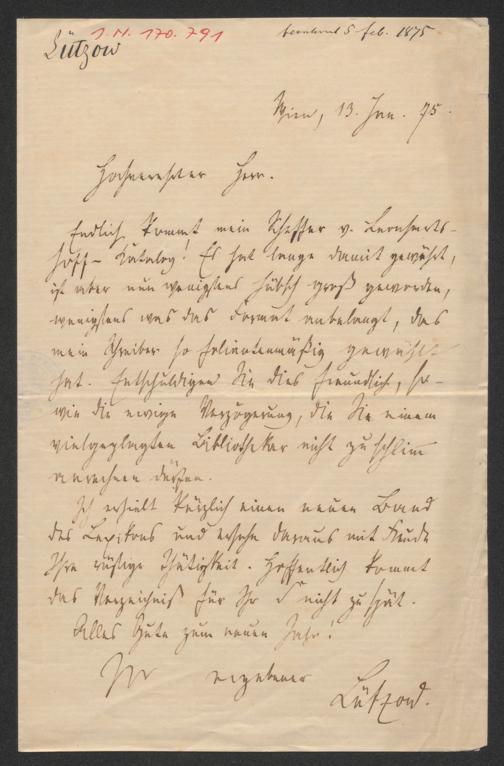 I.N. 170.791
Lützow
beantwort 5 Feb. 1875
Wien, 13. Jan. 75.
Hochverehrter Herr.
Endlich kommt mein Scheffer v. Leonharts-
hoff-Katalog! Es hat lange damit gewährt,
ist aber nun wenigstens hübsch groß geworden,
wenigstens was das Format anbelangt, das
mein Schreiber so foliantenmäßig gewählt
hat. Entschuldigen Sie dies freundlich, so-
wie die ewige Verzögerung, die Sie einem
vielgeplagten Bibliothekar nicht zu schlimm
anrechnen dürfen.
Ich erhielt kürzlich einen neuen Band
des Lexikons und ersehe daraus mit Freude
Ihre rüstige Thätigkeit. Hoffentlich kommt
das Verzeichniß für Ihr S nicht zu spät.
Alles Gute zum neuen Jahr!
Ihr ergebener
Lützow.